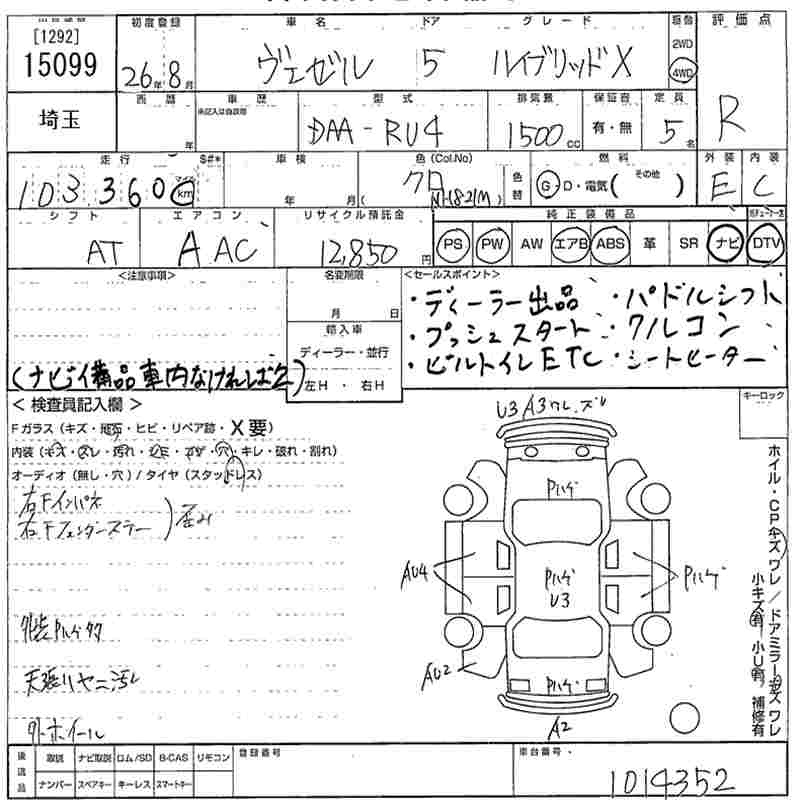 [1292]
15099
初度登録
26年8月
車名
ヴェゼル
ドア
5
グレード
ハイブリッドX
駆動
2WD
4WD
評価点
R
埼玉
西暦
年
車歴
未記入は自家用
型式
DAA-RU4
排気量
1500cc
保証書
有・無
定員
5名
走行
$#*
103360
マイル
km
車検
年 月
色(Col.No)
クロ
色替
燃料
G・D・電気(その他)
外装
E
内装
C
シフト
AT
エアコン
AAC
リサイクル預託金
12,850円
純正装備品
PS PW AW エアB ABS 革 SR ナビ DTV
<注意事項>
(ナビデイ備品車内なければ2)
名変期限
月 日
輸入車
ディーラー・並行
左H・右H
<セールスポイント>
・ディーラー出品 ・パドルシフト
・プッシュスタート ・クルコン
・ビルトインETC ・シートヒーター
キーロック
<検査員記入欄>
Fガラス(キズ・飛石・ヒビ・リペア跡・X要)
内装(キズ・スレ・汚れ・コゲ・ネジ・穴・キレ・破れ・割れ)
オーディオ(無し・穴)/タイヤ(スタッドレス)
右Fインパネ
右Fフェンダーステー
歪み
外装Pハゲ多
天張りヤニ汚レ
外ホイール
U3 A3 ワレ.ズレ
Pハゲ
AU4
Pハゲ
U3
Pハゲ
AU2
Pハゲ
A2
ホイル・CPキズワレ/ドアミラーキズワレ
小キズ有, 小U有, 補修有
後送品
取説 ナビ取説 ロム/SD B-CAS リモコン
ナンバー スペアキー キーレス スマートキー
登録番号
車台番号
1014352